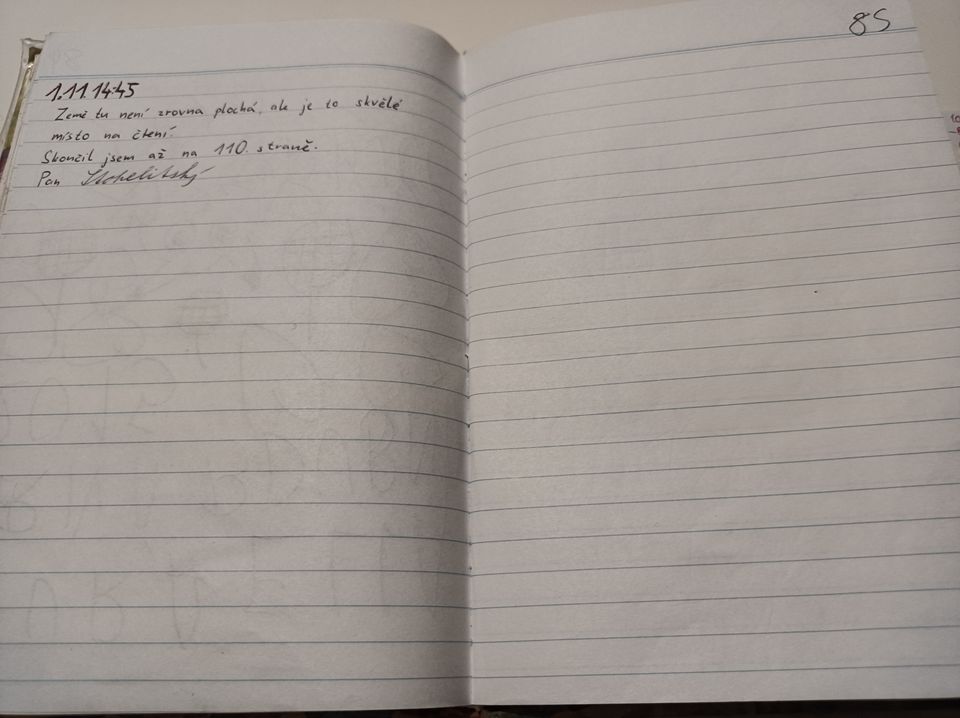 85
1.11. 14:45
Země tu není zrovna plochá, ale je to skvělé
místo na čtení.
Skončil jsem až na 110. straně.
Pan